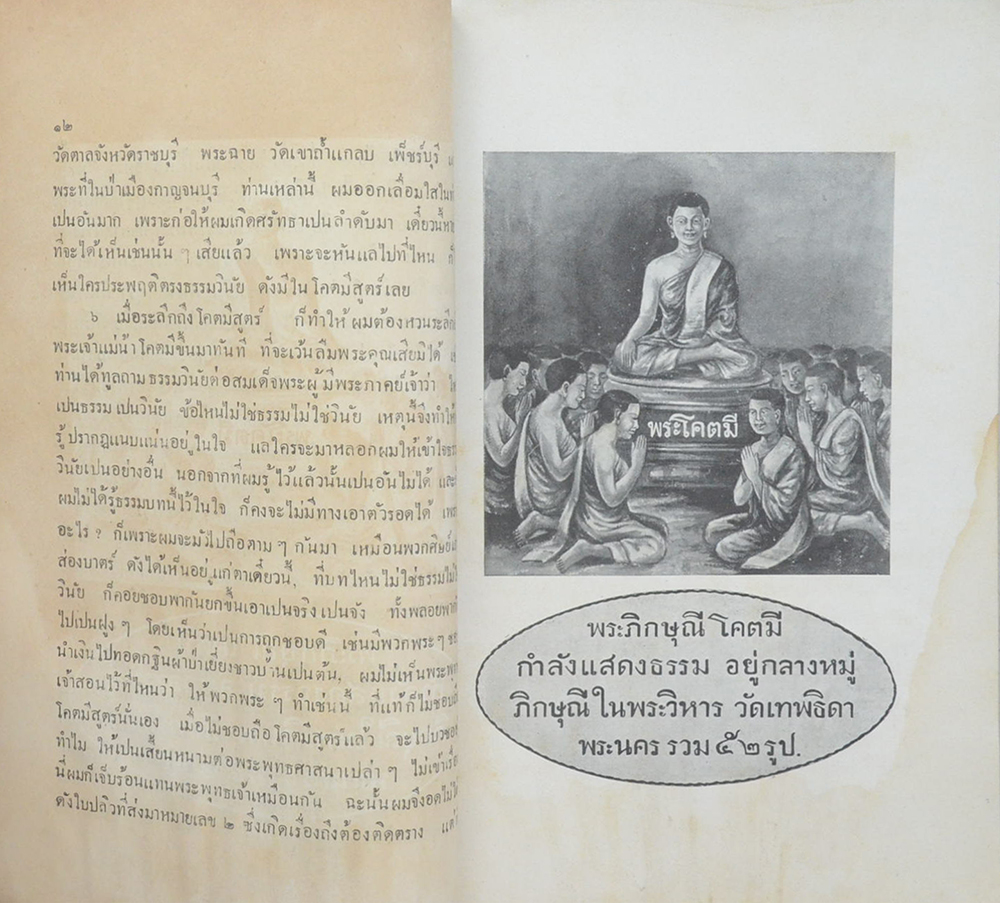 ๑๒
วัดตาลจังหวัดราชบุรี พระฉาย วัดเขาถ้ำแกลบ เพ็ชร์บุรี แ
พระที่ในป่าเมืองกาญจนบุรี ท่านเหล่านี้ ผมออกเลื่อมใสใน
เปนอันมาก เพราะก่อให้ผมเกิดศรัทธาเปนลำดับมา เดี๋ยวนี้
ที่จะได้เห็นเช่นนั้น ๆ เสียแล้ว เพราะจะหันแลไปที่ไหน ก็
เห็นใครประพฤติตรงธรรมวินัย ดังมีใน โคตมีสูตร์ เลย
๖ เมื่อระลึกถึงโคตมีสูตร์ ก็ทำให้ผมต้องหวนระลึก
พระเจ้าแม่น้า โคตมีขึ้นมาทันที ที่จะเว้นลืมพระคุณเสียมิได้
ท่านได้ทูลถามธรรมวินัยต่อสมเด็จพระผู้มีพระภาคย์เจ้าว่า
เปนธรรม เปนวินัย ข้อไหนไม่ใช่ธรรมไม่ใช่วินัย เหตุนี้จึงทำให้
รู้ปรากฎแนบแน่นอยู่ในใจ แลใครจะมาหลอกผมให้เข้าใจ
วินัยเปนอย่างอื่น นอกจากที่ผมรู้ไว้แล้วนั้นเปนอันไม่ได้
ผมไม่ได้รู้ธรรมบทนี้ไว้ในใจ ก็คงจะไม่มีทางเอาตัวรอดได้
อะไร ? ก็เพราะผมจะมัวไปถือตาม ๆ กันมา เหมือนพวกศิษย์
ส่องบาตร์ ดังได้เห็นอยู่แก่ตาเดี๋ยวนี้, ที่บทไหนไม่ใช่ธรรมไม่
วินัย ก็คอยชอบพากันยกขึ้นเอาเปนจริงเปนจัง ทั้งพลอยพา
ไปเปนฝูง ๆ โดยเห็นว่าเปนการถูกชอบดี เช่นมีพวกพระ ๆ
นำเงินไปทอดกฐินผ้าป่าเยี่ยงชาวบ้านเปนต้น, ผมไม่เห็นพระพุท
เจ้าสอนไว้ที่ไหนว่า ให้พวกพระ ๆ ทำเช่นนี้ ที่แท้ก็ไม่ชอบ
โคตมีสูตร์นั่นเอง เมื่อไม่ชอบถือโคตมีสูตร์แล้ว จะไปบวช
ทำไม ให้เปนเสี้ยนหนามต่อพระพุทธศาสนาเปล่า ๆ ไม่เข้าเรื่อ
นี่ผมก็เจ็บร้อนแทนพระพุทธเจ้าเหมือนกัน ฉะนั้นผมจึงอดไม่
ดังใบปลิวที่ส่งมาหมายเลข ๒ ซึ่งเกิดเรื่องถึงต้องติดตราง แต่
พระโคตมี
พระภิกษุณี โคตมี
กำลังแสดงธรรม อยู่กลางหมู่
ภิกษุณี ในพระวิหาร วัดเทพธิดา
พระนคร รวม ๕๒ รูป.